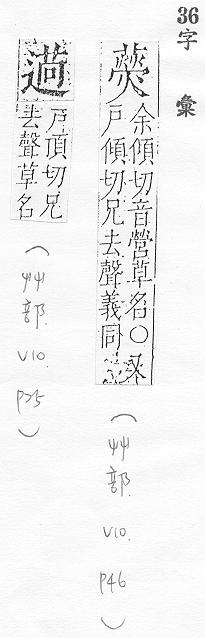 36字 彙
余傾切音營草名○又
戶傾切兄去聲義同
(艸部 V10. P46)
戶頂切兄
去聲草名
(艸部 V10. P25)